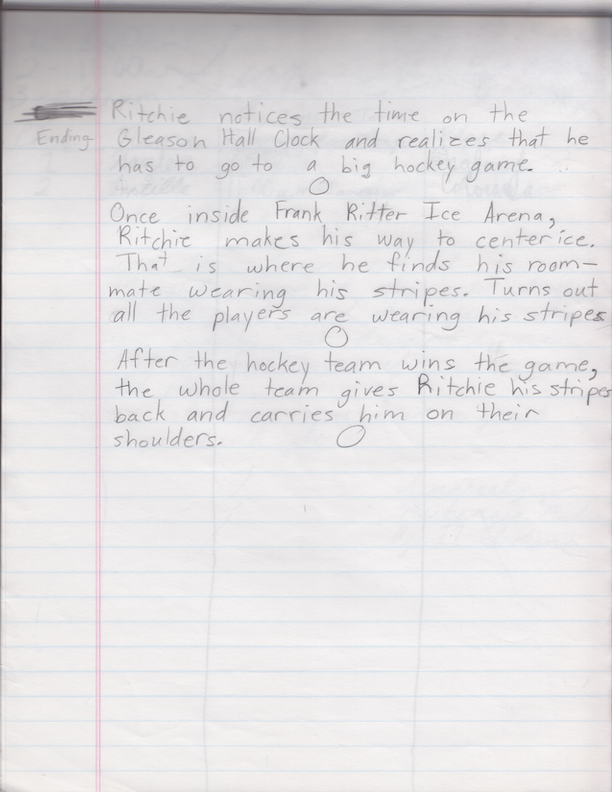 Ritchie notices the time on the
Ending
Gleason Hall Clock and realizes that he
has to go to a big hockey game.
Once inside Frank Ritter Ice Arena,
Ritchie makes his way to center ice.
That is where he finds his room-
mate wearing his stripes. Turns out
all the players are wearing his stripes
After the hockey team wins the game,
the whole team gives Ritchie his stripes
back and carries him on their
shoulders.